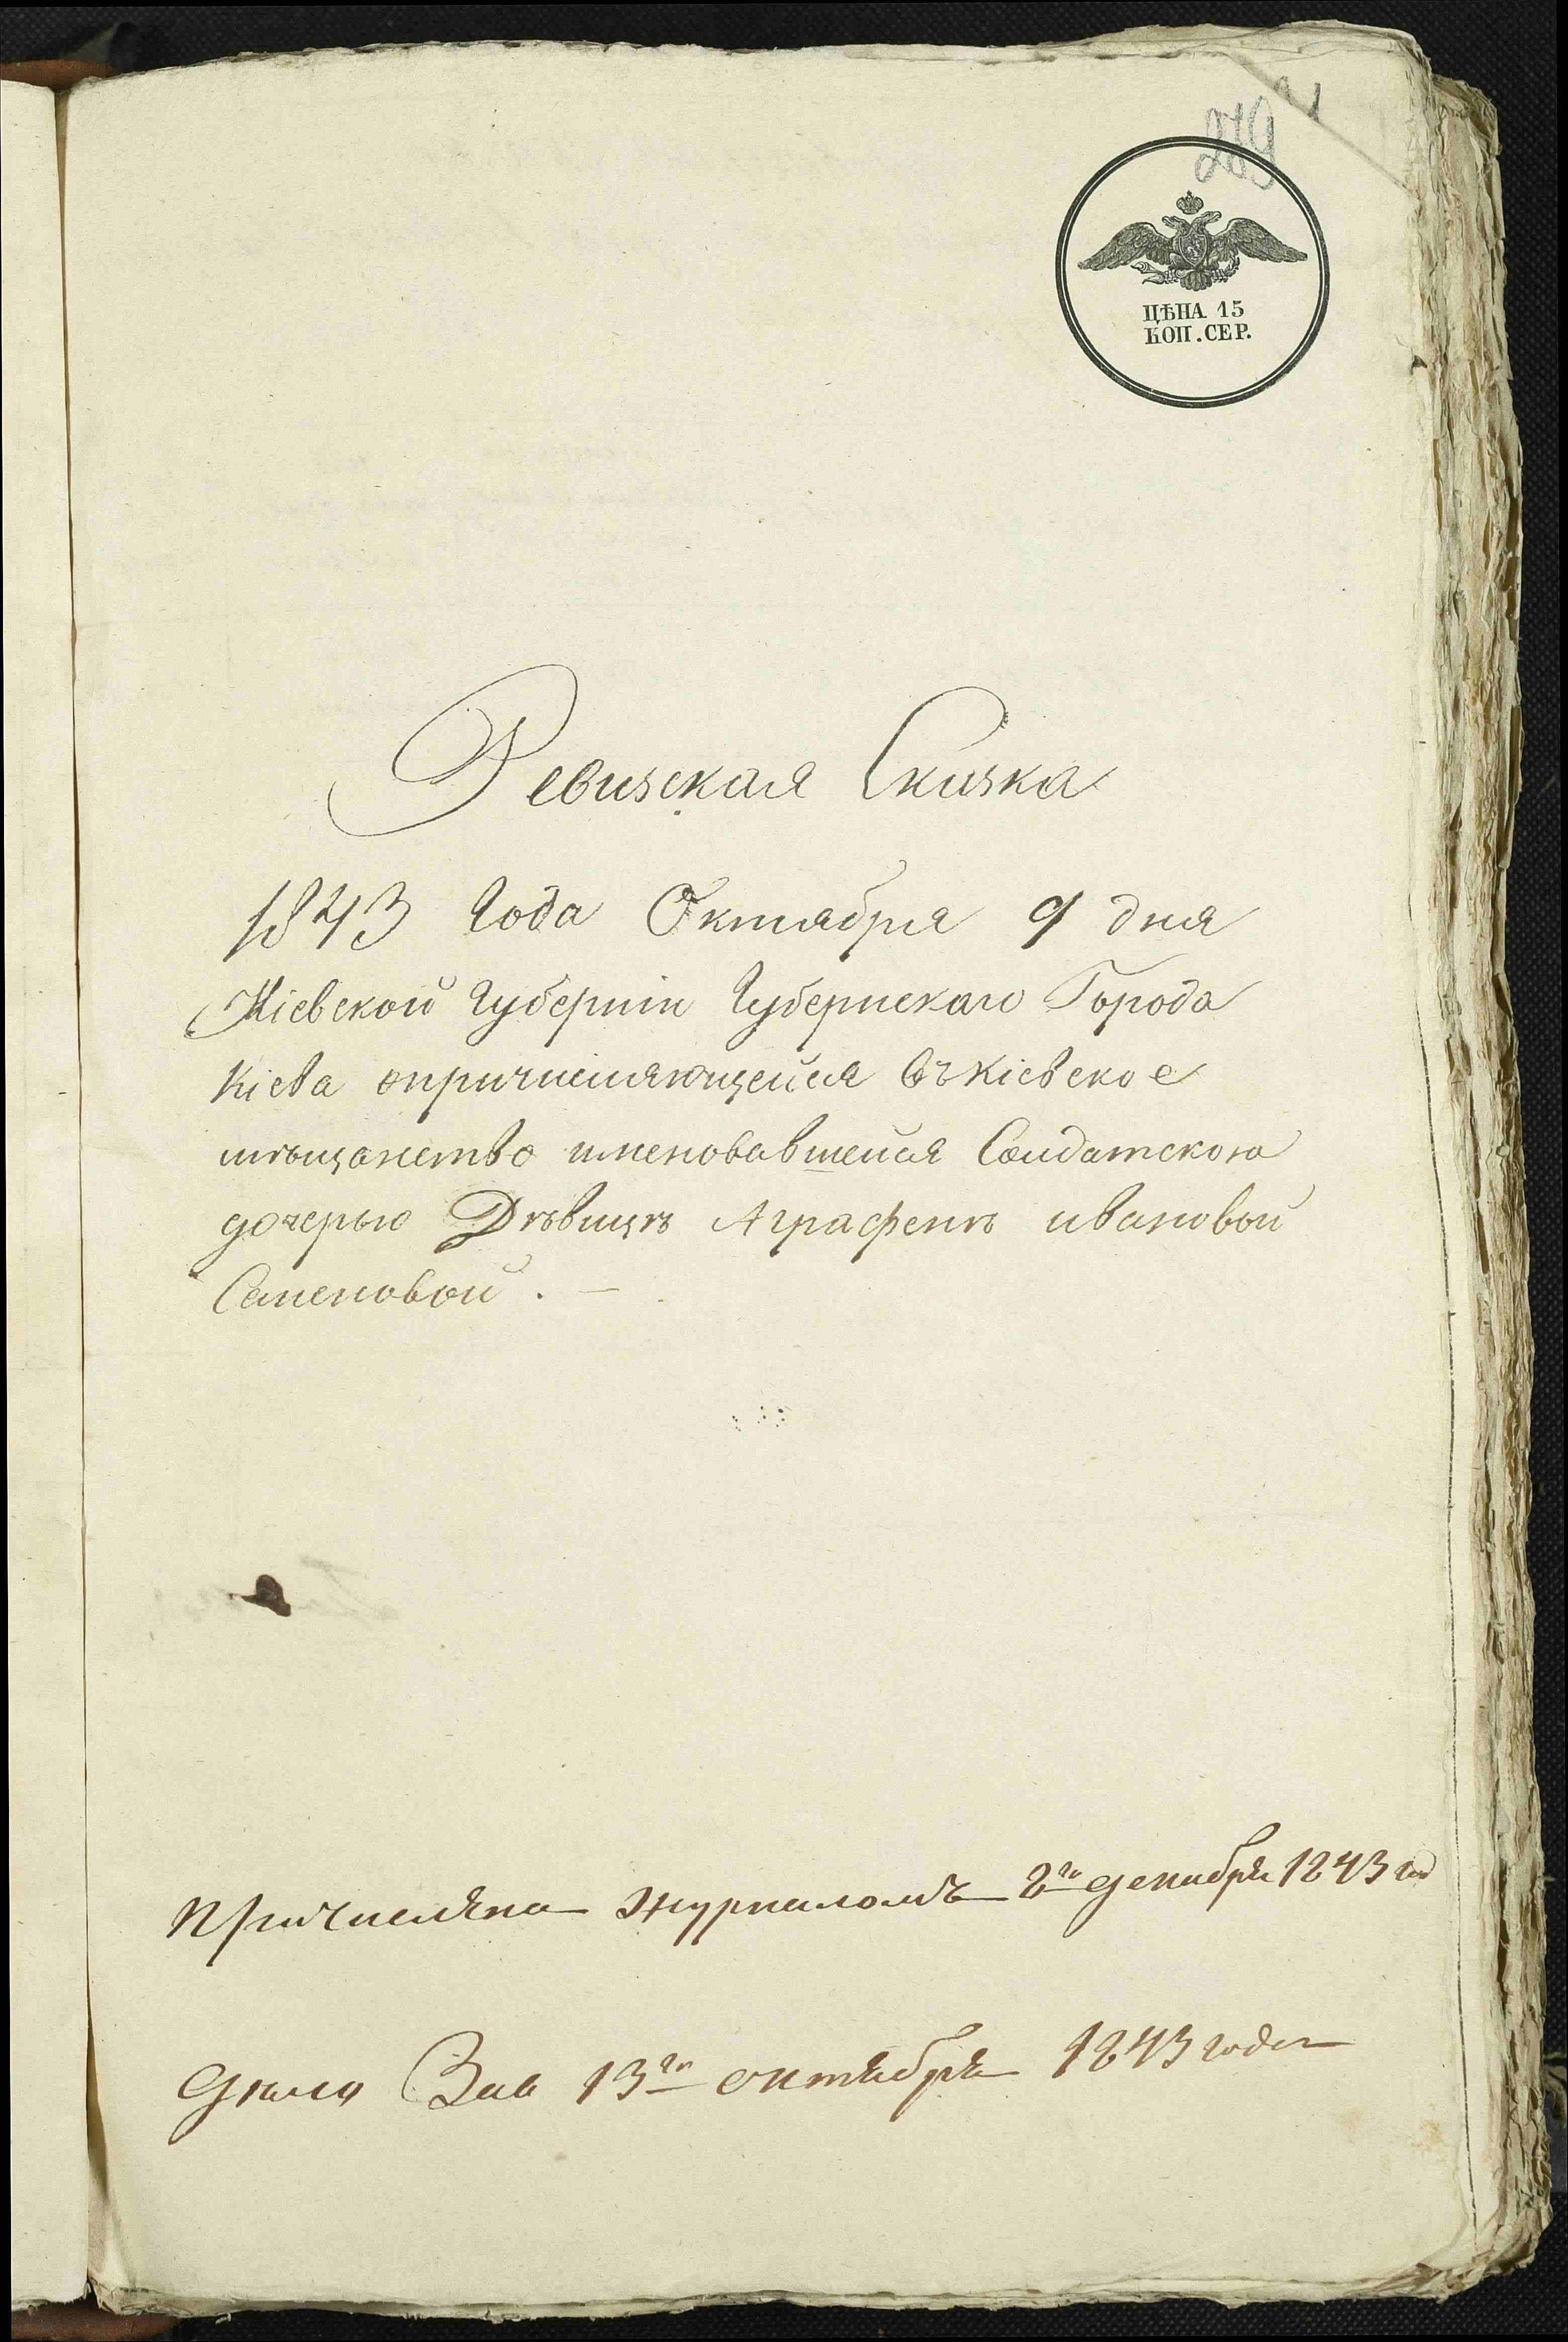 ЦѢНА 15
КОП. СЕР.
Ревизская Сказка
1843 Года Октября 9 дня
Кіевской Губерніи Губернскаго Города
Кіева опричисляющейся въ Кіевское
мѣщанство именовавшейся Солдатскою
дочерью Дѣвицѣ Аграфенѣ ивановой
Семеновой. —
Причислена журналомъ 2го декабря 1843 го
13го октября 1843 года